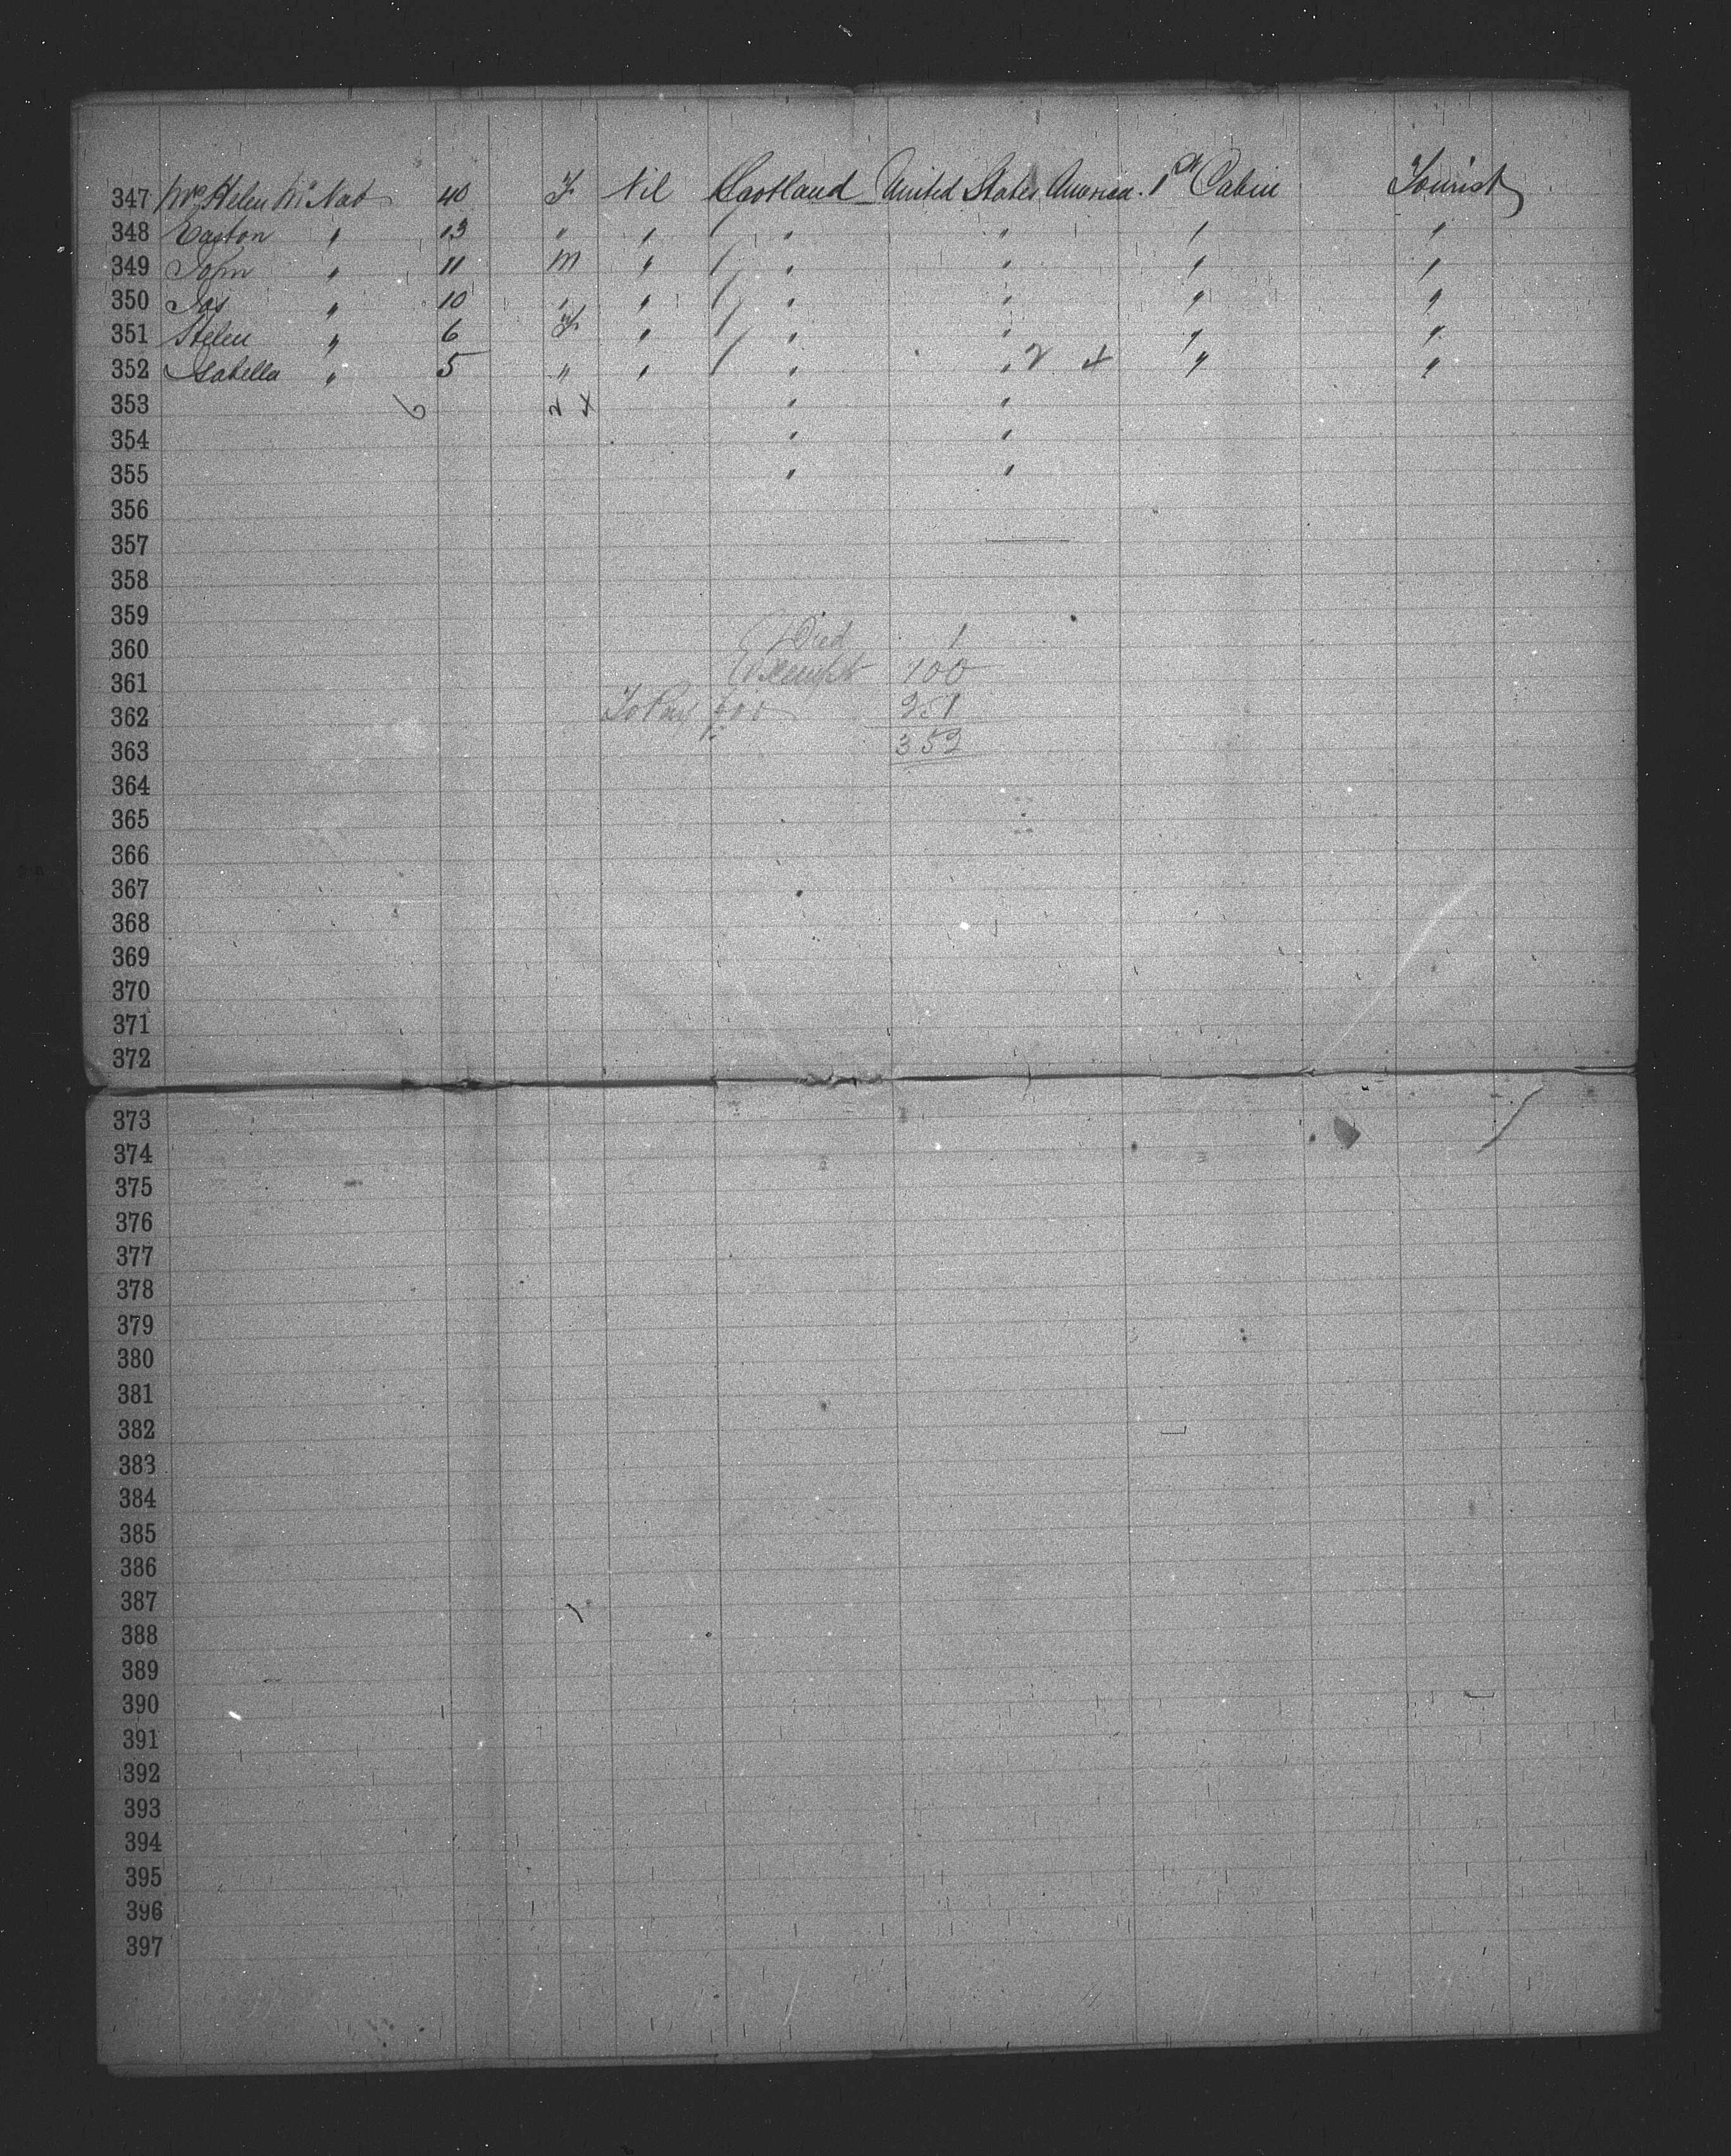 347 Mrs Helen McNab 40 F Nil Scotland United States America. 1st Cabin Tourist
348 Easton " 13 " " " " " "
349 John " 11 M " " " " "
350 Jas " 10 " " " " " "
351 Helen " 6 F " " " " "
352 Isabella " 5 " " " " 2 4 " "
353 6 2 4 " "
354 " "
355 " "
356
357
358
359
360 Died 1
361 Exempt 100
362 To Pay 251
363 352
364
365
366
367
368
369
370
371
372
373
374
375
376
377
378
379
380
381
382
383
384
385
386
387
388
389
390
391
392
393
394
395
396
397